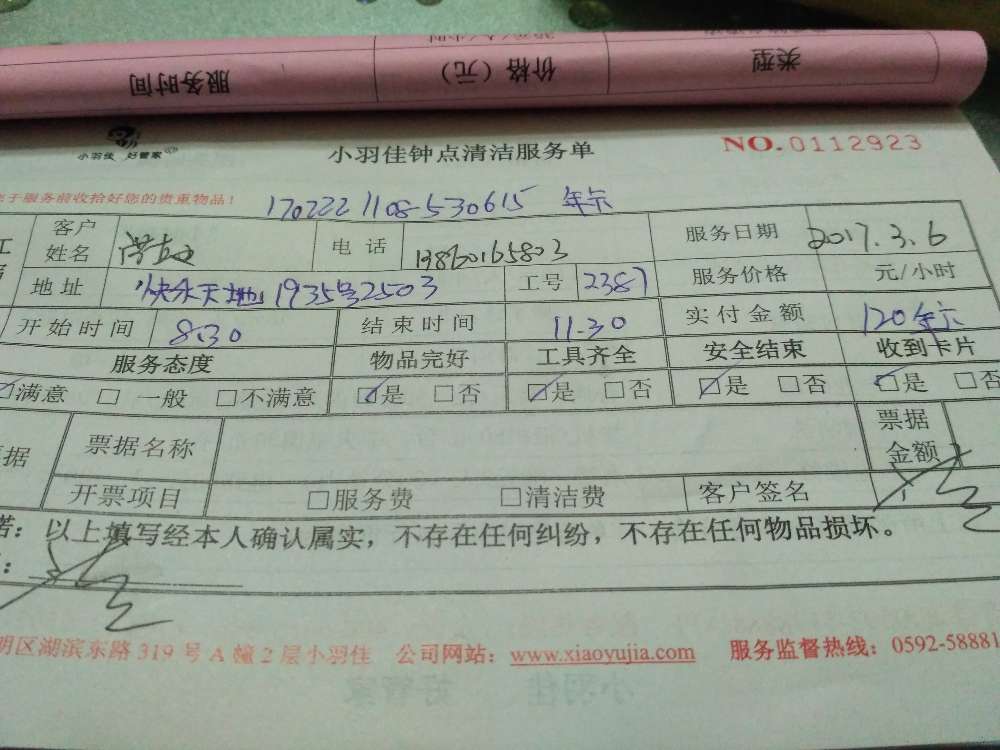 类型 价格（元） 服务时间
小羽佳 好管家
小羽佳钟点清洁服务单
NO.0112923
于服务前收拾好您的贵重物品！
170222 1108-530615 年卡
客户姓名 电话 13860165803 服务日期 2017.3.6
地址 快乐天地1935号2503 工号 2387 服务价格 元/小时
开始时间 8:30 结束时间 11.30 实付金额 120年卡
服务态度 物品完好 工具齐全 安全结束 收到卡片
☑满意 □一般 □不满意 ☑是 □否 ☑是 □否 ☑是 □否 ☑是 □否
据 票据名称 票据金额
开票项目 □服务费 □清洁费 客户签名
诺：以上填写经本人确认属实，不存在任何纠纷，不存在任何物品损坏。
明区湖滨东路319号A幢2层小羽佳 公司网站：www.xiaoyujia.com 服务监督热线：0592-58881